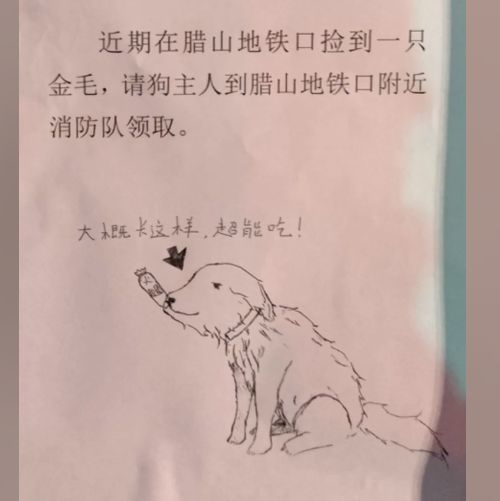 近期在腊山地铁口捡到一只
金毛，请狗主人到腊山地铁口附近
消防队领取。
大概长这样，超能吃！
火腿